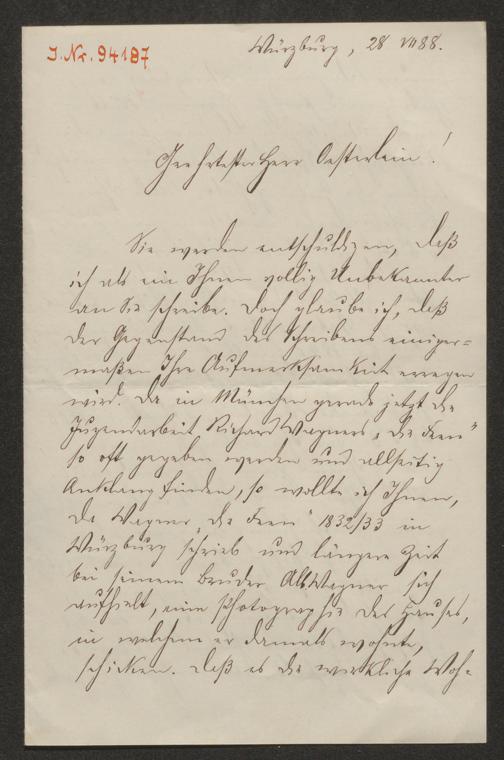 J. Nr. 94187
Würzburg, 28 VII 88.
Geehrtester Herr Oesterlein!
Sie werden entschuldigen, daß
ich als ein Ihnen völlig Unbekannter
an Sie schreibe. Doch glaube ich, daß
der Gegenstand des Schreibens einiger=
maßen Ihre Aufmerksamkeit erregen
wird. Da in München gerade jetzt die
Jugendarbeit Richard Wagners „die Feen"
so oft gegeben werden und allseitig
Anklang finden, so wollte ich Ihnen,
da Wagner „die Feen" 1832/33 in
Würzburg schrieb und längere Zeit
bei seinem Bruder Alb. Wagner sich
aufhielt, eine Photographie des Hauses,
in welchem er damals wohnte,
schicken. Daß es die wirkliche Woh=